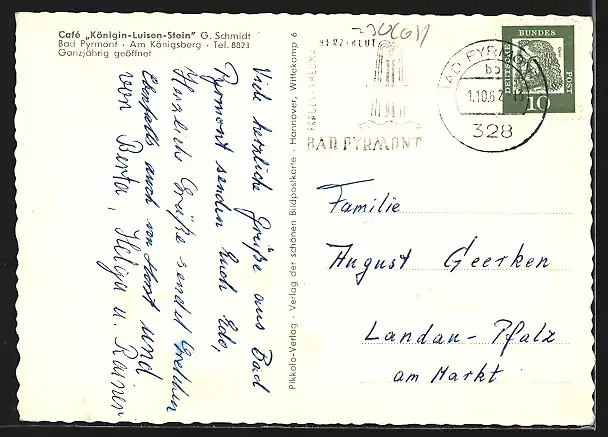 Café „Königin-Luisen-Stein" G. Schmidt
Bad Pyrmont · Am Königsberg · Tel. 8823
Ganzjährig geöffnet
Viele herzliche Grüße aus Bad
Pyrmont senden Euch Edo,
Herzliche Grüße sendet Gretchen
Ebenfalls auch von Horst und
von Berta, Helga u. Rainer
Pikkolo-Verlag · Verlag der schönen Bildpostkarte · Hannover, Wittekamp 6
HERZ · BLUT
FRAUEN
BAD PYRMONT
BAD PYRMONT
1.10.62
328
DEUTSCHE
BUNDES
POST
10
Familie
August Geerken
Landau-Pfalz
am Markt